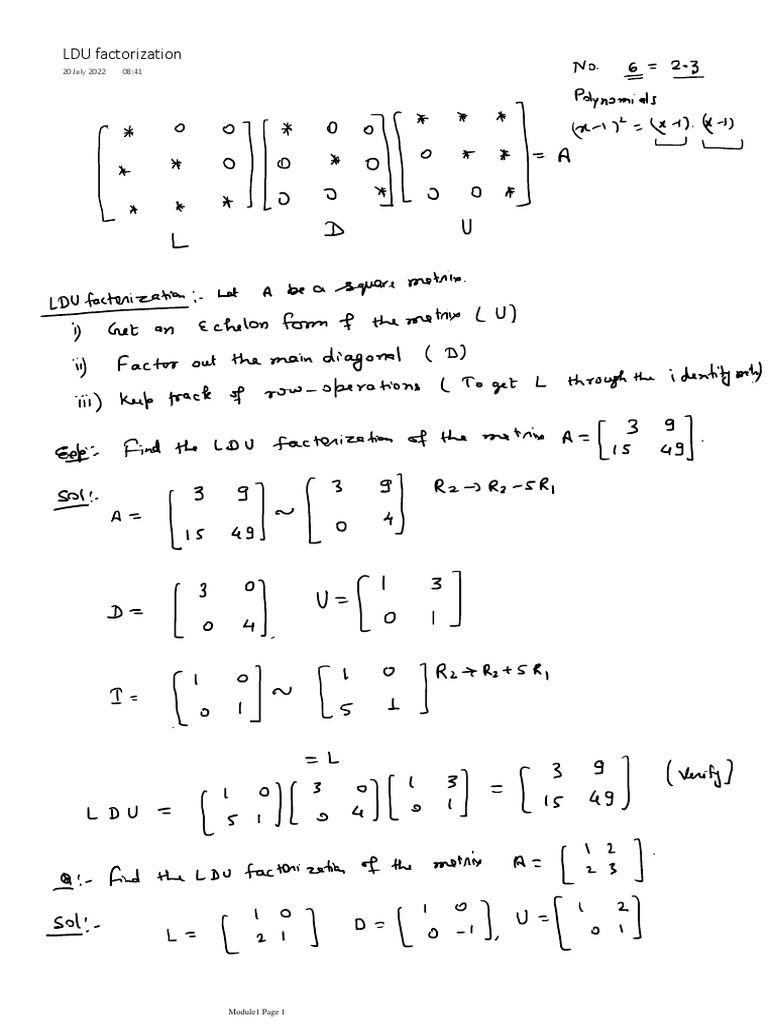 LDU factorization
20 July 2022 08:41
No. 6 = 2·3
Polynomials
(x-1)² = (x-1).(x-1)
[* 0 0] [* 0 0] [* * *]
[* * 0] [0 * 0] [0 * *] = A
[* * *] [0 0 *] [0 0 *]
L D U
LDU factorization:- Let A be a square matrix.
i) Get an Echelon form of the matrix (U)
ii) Factor out the main diagonal (D)
iii) Keep track of row-operations (To get L through the identity only)
Find the LDU factorization of the matrix A = [3 9
15 49].
Sol:-
A = [3 9 ~ [3 9 R2 → R2 - 5R1
15 49] 0 4]
D = [3 0 U = [1 3
0 4], 0 1]
I = [1 0 ~ [1 0 R2 → R2 + 5R1
0 1] 5 1]
= L
LDU = [1 0 [3 0 [1 3 = [3 9 (Verify)
5 1] 0 4] 0 1] 15 49]
Q:- Find the LDU factorization of the matrix A = [1 2
2 3].
Sol:- L = [1 0 D = [1 0 U = [1 2
2 1] 0 -1], 0 1]
Module1 Page 1